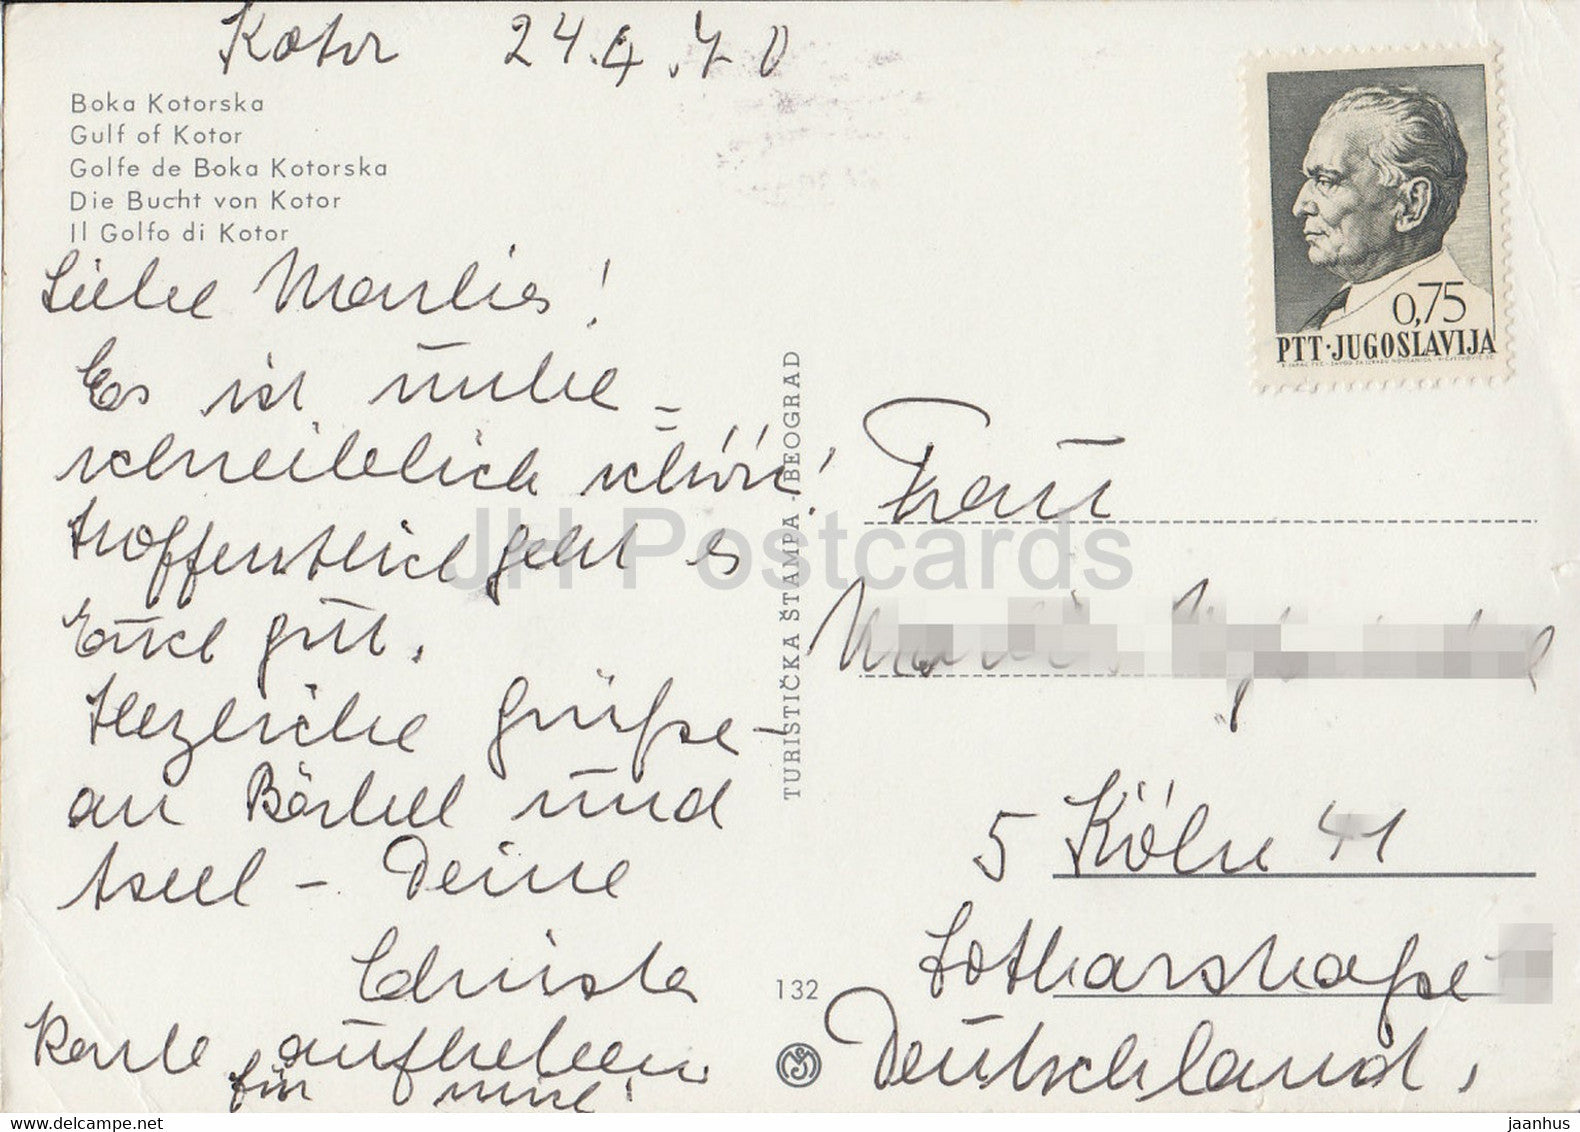 Kotor 24.4.70
Boka Kotorska
Gulf of Kotor
Golfe de Boka Kotorska
Die Bucht von Kotor
Il Golfo di Kotor
Liebe Marlies!
Es ist unbe=
schreiblich schön!
Hoffentlich geht es
Euch gut.
Herzliche Grüße –
an Bärbel und
Axel – Deine
Christa
Karte aufheben
für mich!
TURISTIČKA ŠTAMPA - BEOGRAD
132
0,75
PTT·JUGOSLAVIJA
Frau
5 Köln 41
Lotharstraße
Deutschland,
JH Postcards
www.delcampe.net
jaanhus